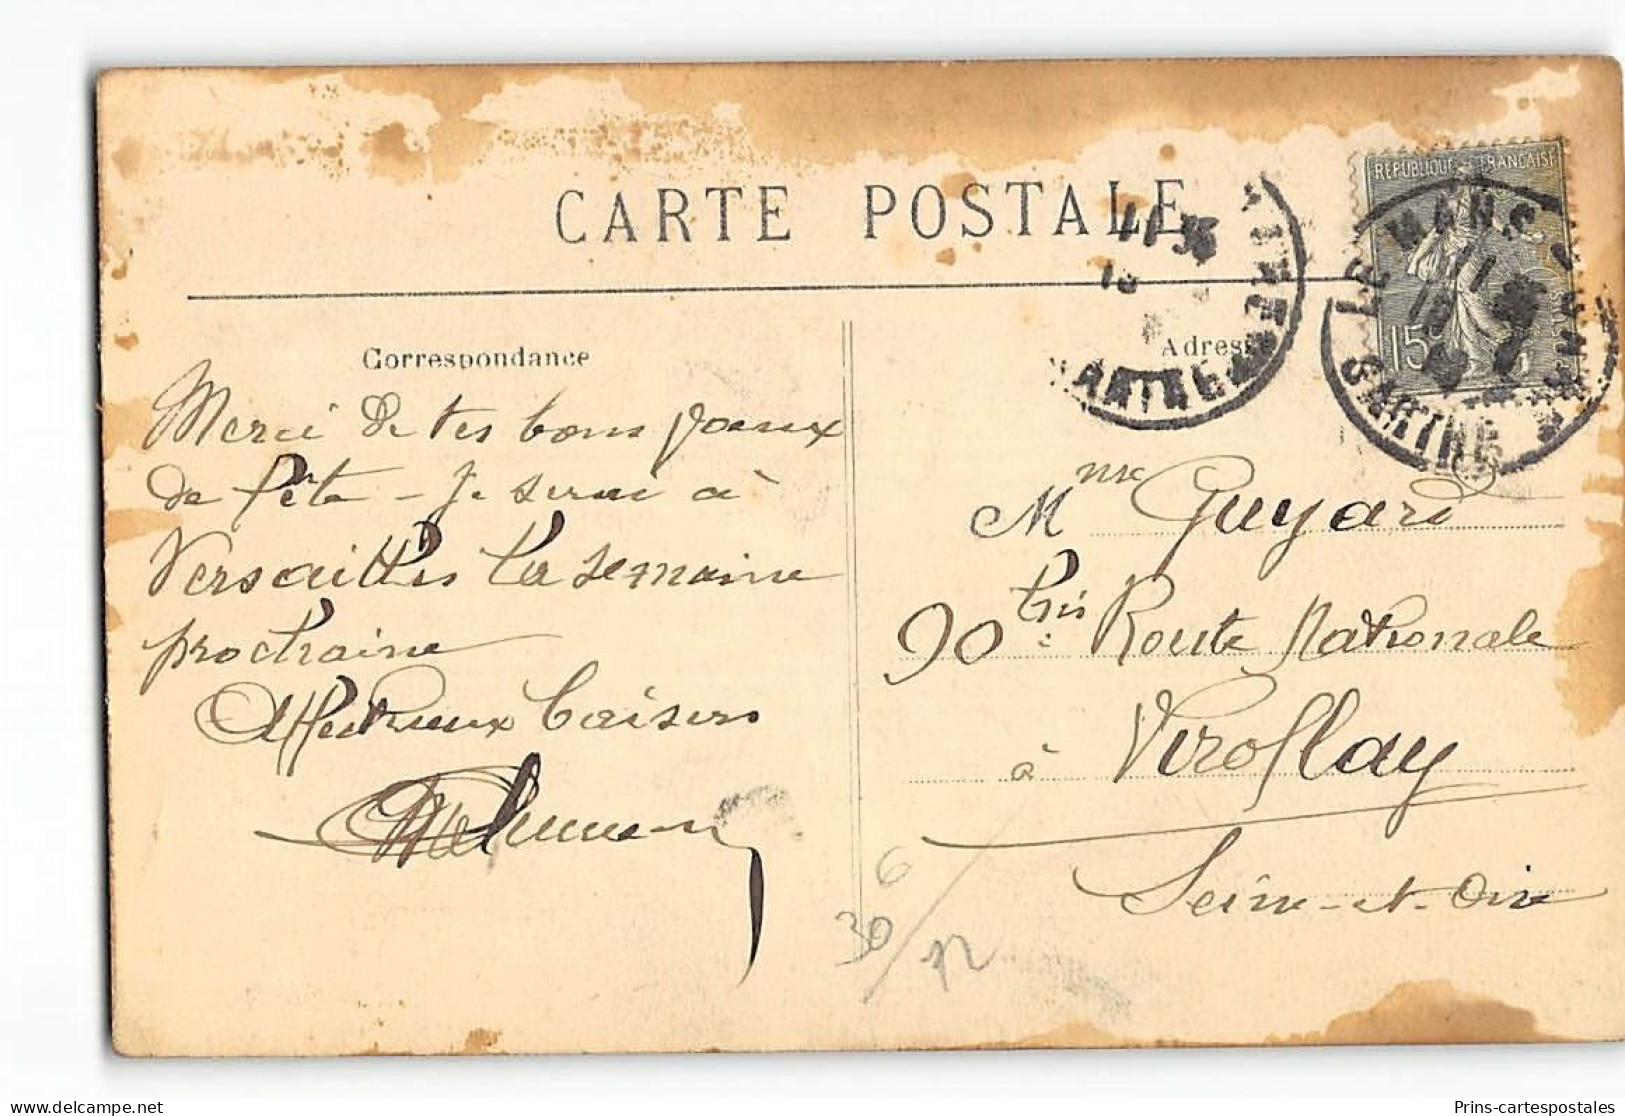 CARTE POSTALE
Correspondance
Merci de tes bons voeux
de fête - Je serai à
Versailles la semaine
prochaine
Affectueux baisers
Adresse
RÉPUBLIQUE FRANÇAISE
15
LE MANS
11 35
SARTHE
11 35
SARTHE
Mme Guyard
90 bis Route Nationale
à Viroflay
Seine-et-Oise
30
6
12
Prins-cartespostales